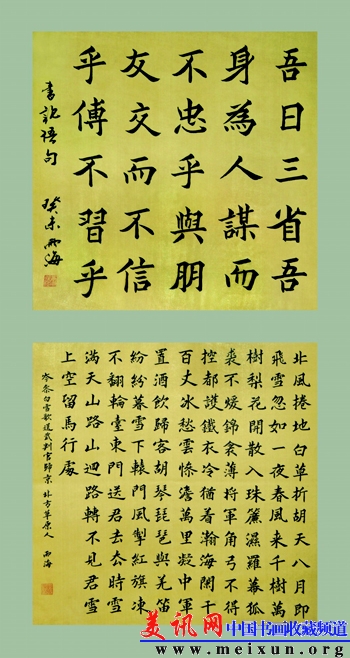 吾日三省吾
身為人謀而
不忠乎與朋
友交而不信
乎傅不習乎
書論語句 癸未
北風捲地白草折胡天八月即
飛雪忽如一夜春風來千樹萬
樹梨花開散入珠簾濕羅幕狐
裘不煖錦衾薄將軍角弓不得
控都護鐵衣冷猶着瀚海闌干
百丈冰愁雲慘澹萬里凝中軍
置酒飲歸客胡琴琵琶與羌笛
紛紛暮雪下轅門風掣紅旗凍
不翻輪臺東門送君去去時雪
滿天山路山迴路轉不見君雪
上空留馬行處
岑參白雪歌送武判官歸京 北方草原人
美讯网 中国书画收藏频道
www.meixun.org